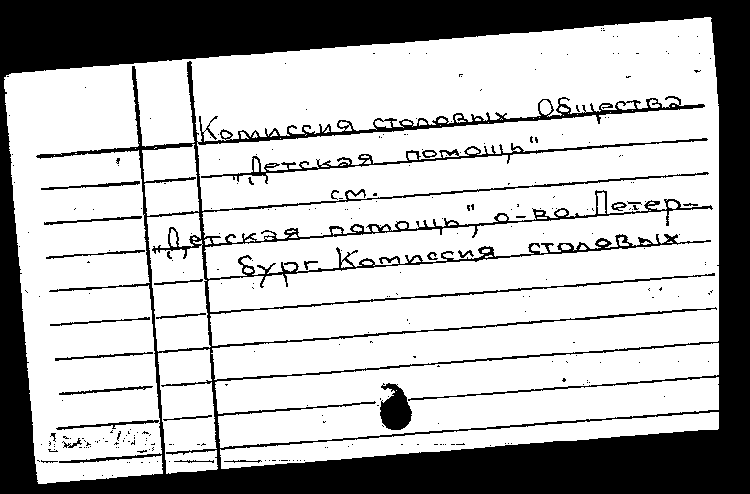 Комиссия столовых Общества
„Детская помощь"
см.
„Детская помощь", о-во. Петер-
бург. Комиссия столовых